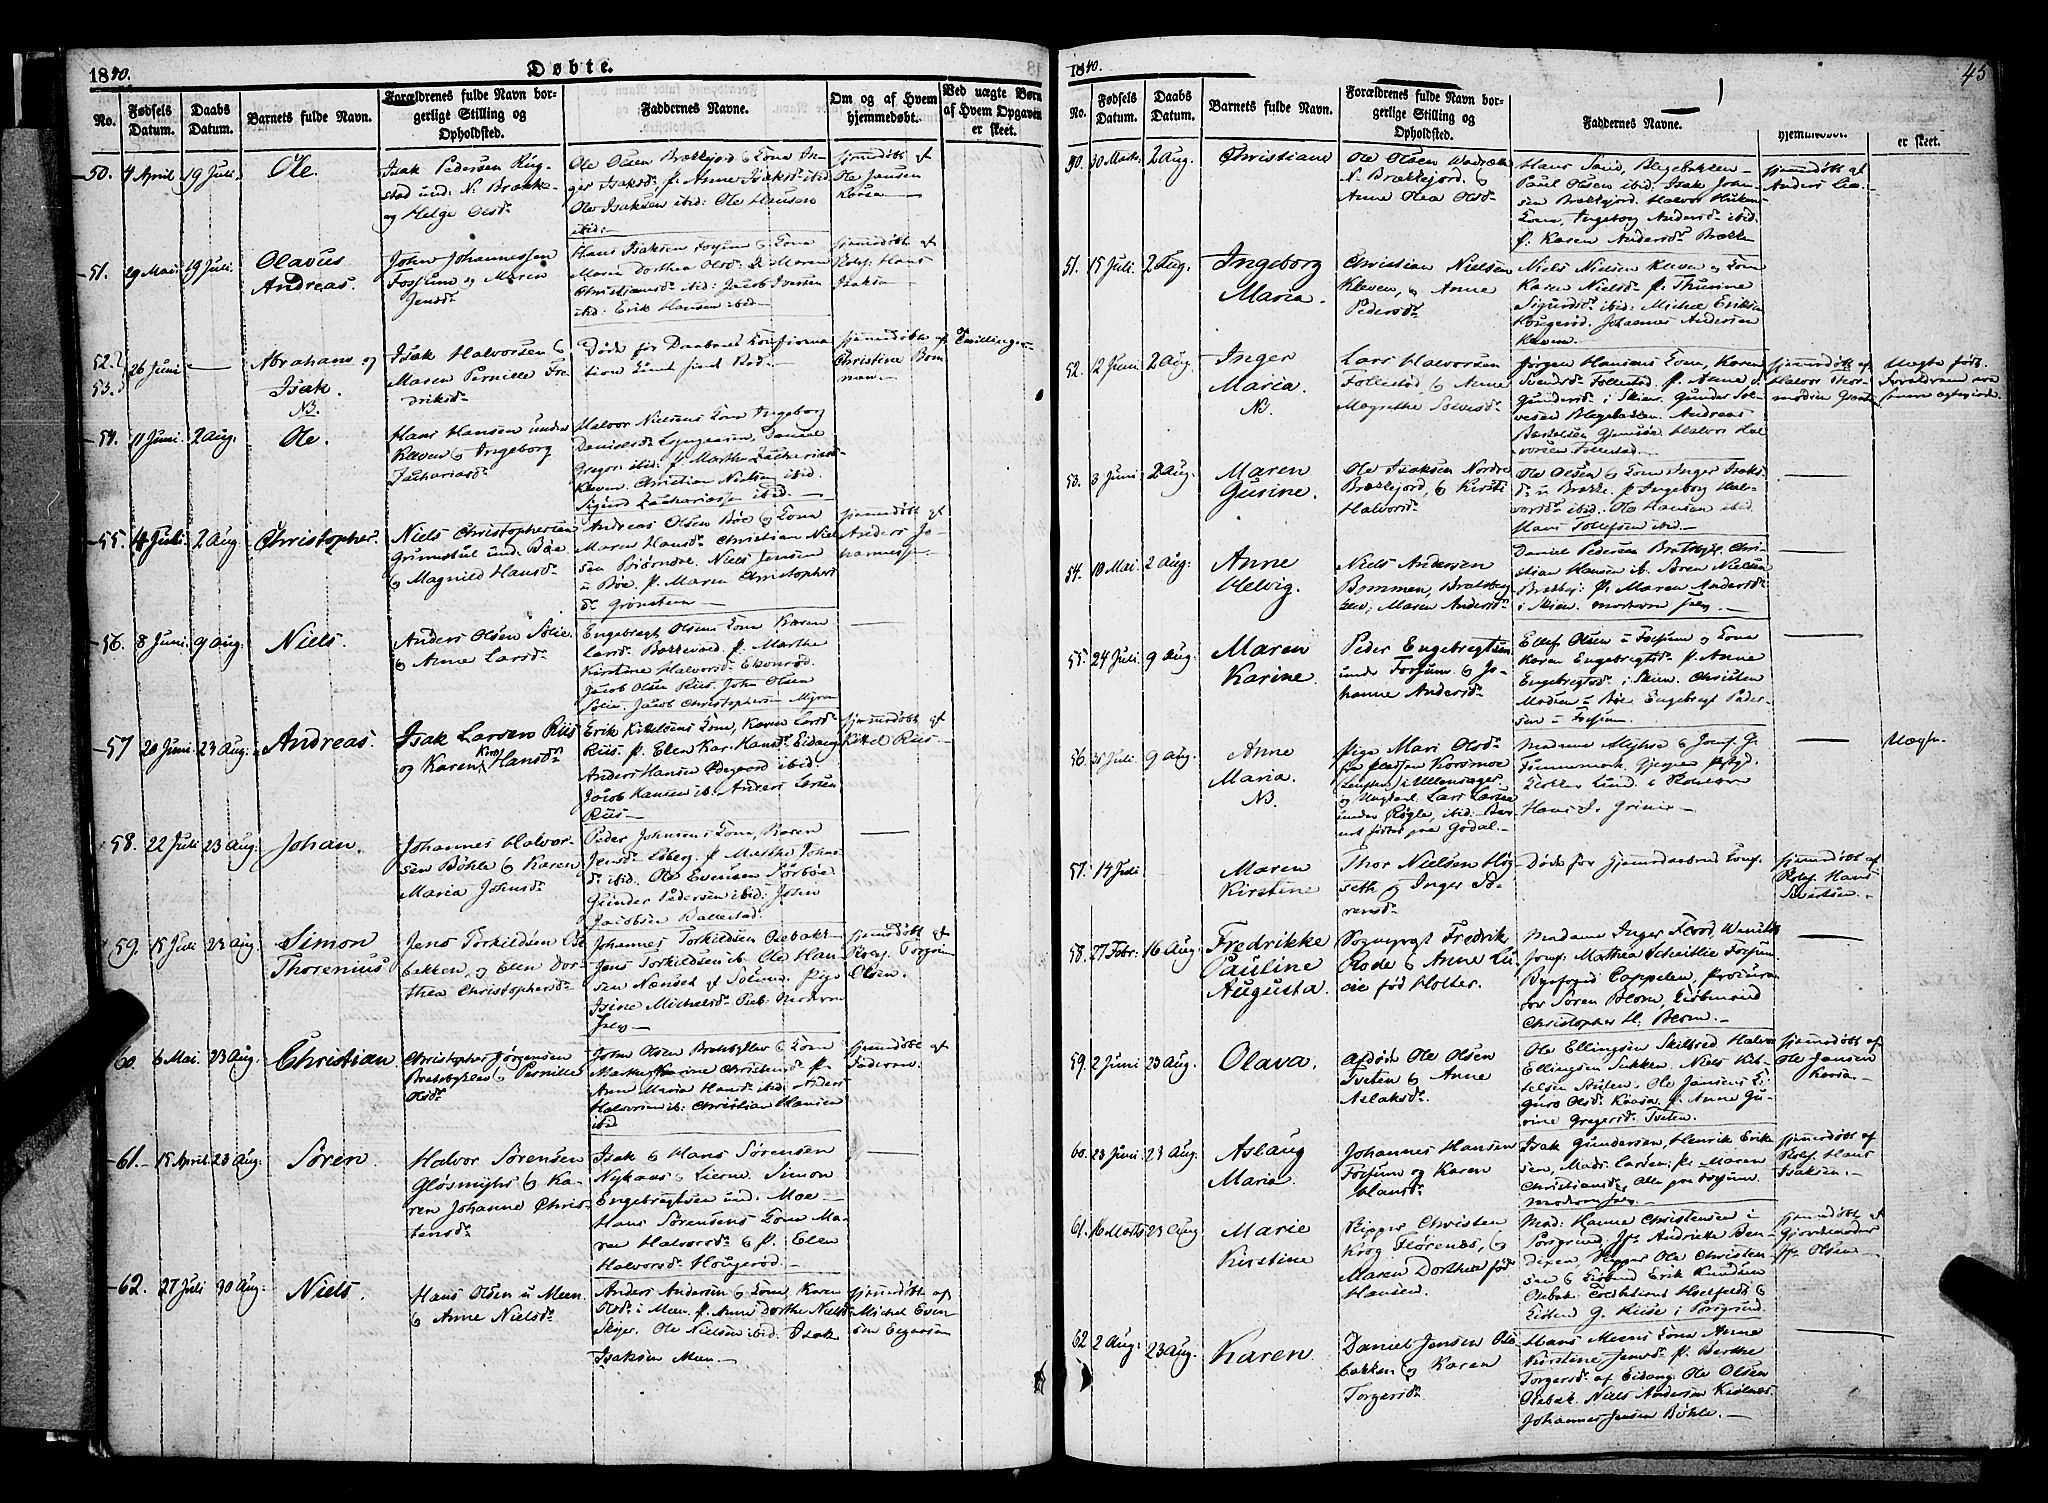 1840.
Døbte.
No.
Fødsels Datum.
Daabs Datum.
Barnets fulde Navn.
Forældrenes fulde Navn borgerlige Stilling og Opholdsted.
Faddernes Navne.
Om og af Hvem hjemmedøbt.
Ved uægte Børn af Hvem Opgaven er skeet.
50. 4 April 19 Juli. Ole.
Isak Pedersen
stad und. N. Brække
og Helge Olsdr
Ole Olsen Brækkejord & Kone In-
ger Isaksdr p. Anne Isaksdr ibid
Ole Isaksen ibid: Ole Hansen
ibid:
hjemmedøbt af
Ole Jansen
Kaasa
51. 29 Mai 19 Juli. Olavus
Andreas.
John Johannessen
Fossum og Maren
Jensdr
Hans Isaksen Fossum & Kone
Maren Dorthea Olsdr: p. Maren
Christiansdr ibid: Jacob Iversen
ibid: Erik Hansen ibid
hjemmedøbt af
Kelsj. Hans
Isaksen
52. 53. 26 Juni Abraham og
Isak.
NB.
Isak Halvorsen &
Maren Pernille Fre-
driksdr
Døde før Daabens Confirma
tion fandt Sted.
hjemmedøbte af
Christine Bom
men.
Tvillinger
54. 11 Juni. 2 Aug. Ole.
Hans Hansen under
Kleven & Ingeborg
Zachariasdr
Halvor Nielsens Kone Ingeborg
Danielsdr
Gregers. ibid: p. Marthe Zachariasdr
Kleven. Christian Nielsen ibid.
Sigurd Zachariass. ibid.
55. 4 Juli 2 Aug Christopher.
Niels Christophersen
Grimstul und. Bøe
& Magnild Hansdr
Andreas Olsen Bøe & Kone
Maren Hansdr Christian Niel
sen Biørnøe. Niels Jensen
u Bøe. p. Maren Christophers
dr Grønsteen
hjemmedøbt af
Anders Jo-
hannessen
56. 8 Juni. 9 Aug. Niels.
Anders Olsen Solie
& Anne Larsdr
Engebregt Olsens Kone Karen
Larsdr Bakkevold p. Marthe
Kirstine Halvorsdr
Jacob Olsen Riis. John Olsen
Solie. Jacob Christophersen Myren
57 20 Juni. 23 Aug. Andreas.
Isak Larsen Riis
og Karen Kirst. Hansdr
Erik Kittelsens Kone, Karen Larsdr
Riis. p. Elen Kar. Hansdr Eidang
Anders Hansen Ødegaard ibid.
Jacob Hansen ib. Anders Larsen
Riis
hjemmedøbt af
Kittel Riis
58. 22 Juli 23 Aug. Johan.
Johannes Halvor-
sen Bøhle & Karen
Maria Johnsdr
Peder Johnsens Kone, Karen
Jensdr Esberg. p. Marthe Johns
dr ibid. Ole Evensen Sørbøe
Gunder Pedersen ibid: John
Jacobsen Ballestad
59. 15 Juli 23 Aug. Simon
Thorenius
Jens Torkildsen Ose-
bakken, og Elen Dor-
thea Christophersdr
Johannes Torkildsen Osebak.
Jens Torkildsen ib. Ole Han
sen Nænset af Solum. Pige
Isine Michelsdr Oseb. Moderen
selv
hjemmedøbt af
Kelsj. Torgrim
Olsen.
60. 6 Mai. 23 Aug. Christian
Christopher Jørgensen
Bratsbykleven & Pernille
Olsdr
John Olsen Bratsbyklev & Kone
Marthe Karine Christensdr p.
Anne Maria Hansdr ibid. Anders
Halvorsen ib: Christian Hansen
ibid
hjemmedøbt af
Faderen.
61. 15 April. 23 Aug. Søren.
Halvor Sørensen
Gløsmyhr & Ka-
ren Johanne Chris-
tensdr
Isak & Hans Sørensen
Nyhaus & Lierne. Simon
Engebregtsen und. Moe
Hans Sørensens Kone Ma-
ren Halvorsdr & p. Elen
Halvorsdr Hougerød.
62. 27 Juli 30 Aug. Niels.
Hans Olsen u Meen
& Anne Nielsdr
Anders Andersen & Kone, Karen
Olsdr i Meen. p. Anne Dorthe Nielsdr
Skyer. Ole Nielsen ibid. Isak
Isaksen Meen
hjemmedøbt af
Michel Even
sen
1840.
45
No.
Fødsels Datum.
Daabs Datum.
Barnets fulde Navn.
Forældrenes fulde Navn borgerlige Stilling og Opholdsted.
Faddernes Navne.
hjemmedøbt.
er skeet.
50. 30 Marts. 2 Aug. Christiane
Ole Olsen
N. Brækkejord. &
Anne Olea Olsdr
Hans Sand, Blegebakken
Paul Olsen ibid. Isak Joan-
sen Brækkejord. Halvor
Kone, Ingeborg Andersdr ibid.
p. Karen Andersdr Brække
hjemmedøbt af
Anders
51. 15 Juli. 2 Aug. Ingeborg
Maria.
Christian Nielsen
Kleven, & Anne
Pedersdr
Niels Nielsen Kleven & Kone
Karen Nielsdr p. Thurine
Sigurdsdr ibid: Michel Eriksen
Hougerød. Johannes Andersen
Kleven.
52. 12 Juni 2 Aug. Inger
Maria.
NB.
Lars Halvorsen
Follestad & Anne
Magrethe Solvesdr
Jørgen Hansens Kone, Karen
Svendsdr Follestad. p. Anne
Gundersdr i Skien. Gunder Sol
vesen Blegebakken. Andreas
Bertelsen Gjemsøe. Halvor Hal
vorsen Follestad.
hjemmedøbt af
Halvor Thor-
modsen
Uægte født.
Forældrene ere
senere ægteviede
53. 3 Juni 2 Aug. Maren
Gurine.
Ole Isaksen Nordre
Brækkejord, & Kirsti
Halvorsdr
Ole Olsen & Kone Inger Isaks
dr u Brække. p. Ingeborg Hal-
vorsdr ibid. Ole Hansen ibid
Hans Tollefsen ibid.
54. 10 Mai. 2 Aug: Anne
Helvig.
Niels Andersen
Bommen, Bratsberg
klev, Maren Andersdr
Daniel Pedersen Bratsbykl. Chri-
stian Hansen ib. Søren Nielsen
Bratsby: p. Maren Andersdr
i Skien. moderen selv.
55. 24 Juli. 9 Aug. Maren
Karine.
Peder Engebregtsen
under Fossum & Jo-
hanne Andersdr
Ellef Olsen u Fossum og Kone
Karen Engebregtsdr p. Anne
Engebregtsdr i Skien. Christen
Madsen u Bøe. Engebregt Peder-
sen u Fossum.
56. 21 Juli 9 Aug. Anne
Maria.
NB
Pige Mari Olsdr
fra Pladsen Korsmoe
i Ullensager
og Ungkarl. Lars Larsen
under Røgle, ibid. Bar-
net født paa Godal
Madame Myhre & Jomf. G.
Finnemark. Gjæstgiver
Lund. u
Hans J. Griner
Uægte.
57. 14 Juli Maren
Kirstine
Thor Nielsen Høg-
seth og Inger Sø-
rensdr
Døde før Hjemmedaabens Conf.
hjemmedøbt af
Kelsj. Hans
Sivertsen.
58. 27 Febr: 16 Aug: Fredrikke
Pauline
Augusta.
Sogneprest Fredrik
Rode & Anne Lu-
cie fød Holter.
Madame Inger Flood
Jomf. Mathea Scheitlie Fossum
Byefoged Cappelen, Procura-
tor Søren Blom, Kiøbmand
Christopher H. Blom.
59. 2 Juni 23 Aug. Olava.
Afdøde Ole Olsen
Tveten & Anne
Aslaksdr
Ole Ellingsen Skilbred Halvor
Ellingsen Bakken. Niels Kit-
telsen Tveten. Ole Jansens K.
Guro Olsdr Kaasa. p. Anne Gu-
rine Gregersdr Tveten.
hjemmedøbt af
Ole Jansen
Kaasa.
60. 23 Juni 23 Aug. Aslaug
Maria.
Johannes Hansen
Fossum og Karen
Hansdr
Isak Gundersen, Henrik Erik-
sen, Mads Larsen, p. Maren
Christiansdr, alle paa Fossum.
moderen selv.
hjemmedøbt af
Kelsj. Hans
Isaksen.
61. 16 Marts 23 Aug Marie
Kirstine
Skipper Christen
Krog Flørenæs, &
Maren Dorthea fød
Hansen.
Mad: Hanna Christensen i
Porsgrund, Jfr Andrikke Ben-
dixen, Skipper Ole Christen
sen & Kiøbmd Erik Knudsen
Osebak. Toldbetient Hoelfeldt &
Kiøbmd G. Kiise i Porsgrund.
hjemmedøbt af
Gjordemoder
Jfr. Olsen
62 2 Aug: 23 Aug. Karen.
Daniel Jensen Ose-
bakken og Karen
Torgersdr
Hans Meens Kone Anne
Kirstine Jensdr p. Berthe
Torgersdr af Eidang. Ole Olsen
Osebak. Niels Andersen Kiølnes
Johannes Jensen Bøhle.